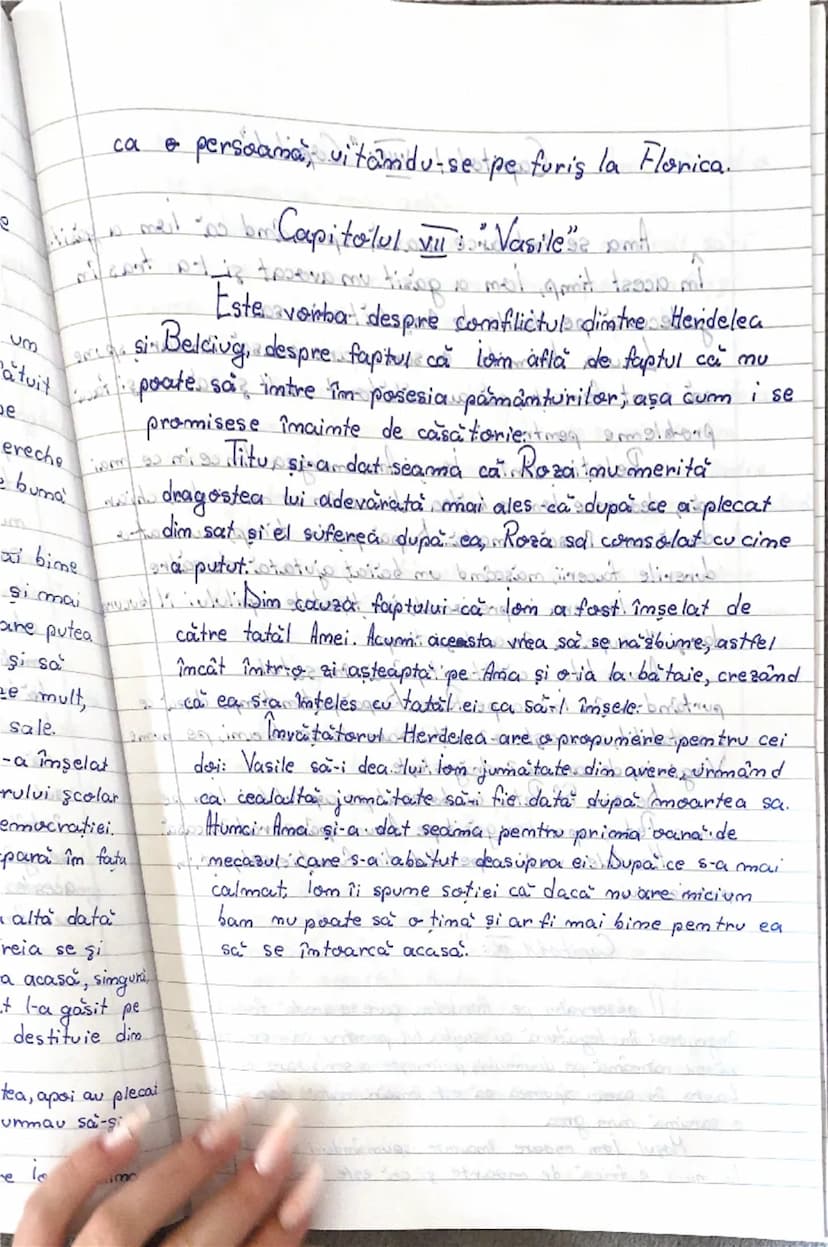 um
ătuit
pe
ereche
e bună
ai bine
și mai
are putea
și să
te mult,
sale.
-a înșelat
rului școlar
emocrației.
pară în fața
altă dată
reia se și
a acasă, singuri,
t l-a găsit pe
destituie din
tea, apoi au plecat
urmau să-și
ca o persoană, uitându-se pe furiș la Florica.
Capitolul VII: "Vasile"
Este vorba despre conflictul dintre Herdelea
și Belciug, despre faptul că Ion află de faptul că nu
poate să intre în posesia pământurilor, așa cum i se
promisese înainte de căsătorie.
Titu și-a dat seama că Roza nu merită
dragostea lui adevărată, mai ales că după ce a plecat
din sat și el suferea după ea, Roza sa consolat cu cine
a putut.
Din cauza faptului că Ion a fost înșelat de
către tatăl Anei. Acum aceasta vrea să se răzbune, astfel
încât într-o zi așteaptă pe Ana și o ia la bătaie, crezând
că ea s-a înțeles cu tatăl ei ca să-l înșele.
Învățătorul Herdelea are o propunere pentru cei
doi: Vasile să-i dea lui Ion jumătate din avere, urmând
ca cealaltă jumătate să-i fie dată după moartea sa.
Atunci Ana și-a dat seama pentru prima oară de
necazul care s-a abătut deasupra ei. După ce s-a mai
calmat, Ion îi spune soției că dacă nu are niciun
ban nu poate să o țină și ar fi mai bine pentru ea
să se întoarcă acasă.